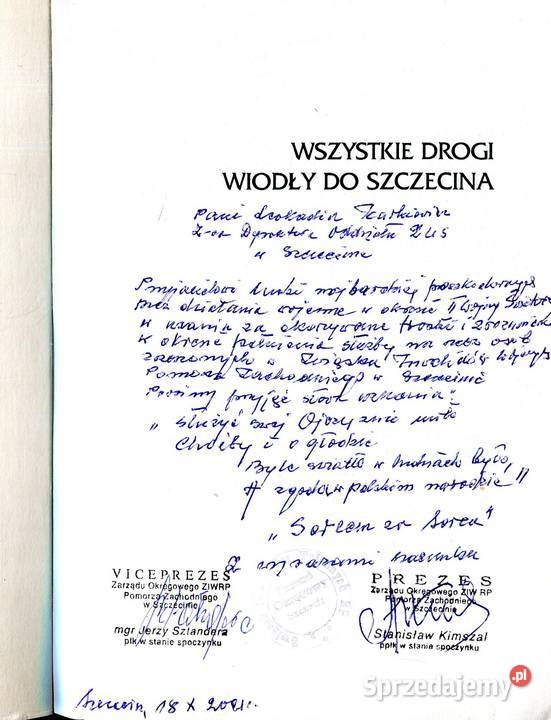 WSZYSTKIE DROGI
WIODŁY DO SZCZECINA
Pani Leokadia
Z-ca Dyrektora Oddziału ZUS
w Szczecinie
Przyjacielowi ludzi najbardziej poszkodowanych
przez działania wojenne w okresie II Wojny
w uznaniu za okazywane troskę i
w okresie pełnienia służby na rzecz osób
zrzeszonych w Związku Inwalidów Wojennych
Pomorza Zachodniego w Szczecinie
Prosimy przyjąć słowa uznania:
„Służyć swej Ojczyźnie miło
Choćby i o głodzie
Byle światło w było,
A zgoda w polskim narodzie"
„Sercem za serce"
Z wyrazami szacunku
VICEPREZES
Zarządu Okręgowego ZIWRP
Pomorza Zachodniego
w Szczecinie
mgr Jerzy Sztandera
płk w stanie spoczynku
PREZES
Zarządu Okręgowego ZIW RP
Pomorza Zachodniego
w Szczecinie
Stanisław Kimszal
ppłk w stanie spoczynku
Szczecin, 18 X 2001r.
Sprzedajemy.pl